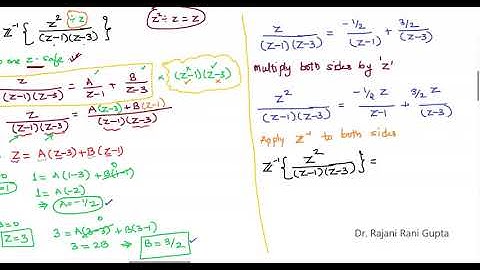 Z⁻¹{ z² ÷z / (z-1)(z-3) }
z² ÷ z = z
one z - safe
z / (z-1)(z-3) = A / z-1 + B / z-3
(z-1)(z-3)
z / (z-1)(z-3) = A(z-3)+B(z-1) / (z-1)(z-3)
z = A(z-3)+B(z-1)
1 = A(1-3)+B(1-1) 0
1 = A(-2)
⇒ A = -1/2
z=3
3 = A(3-3)+B(3-1) 0
3 = 2B ⇒ B = 3/2
z / (z-1)(z-3) = -1/2 / (z-1) + 3/2 / (z-3)
Multiply both sides by 'z'
z² / (z-1)(z-3) = -1/2 z / z-1 + 3/2 z / (z-3)
Apply z⁻¹ to both sides
Z⁻¹{ z² / (z-1)(z-3) } =
Dr. Rajani Rani Gupta